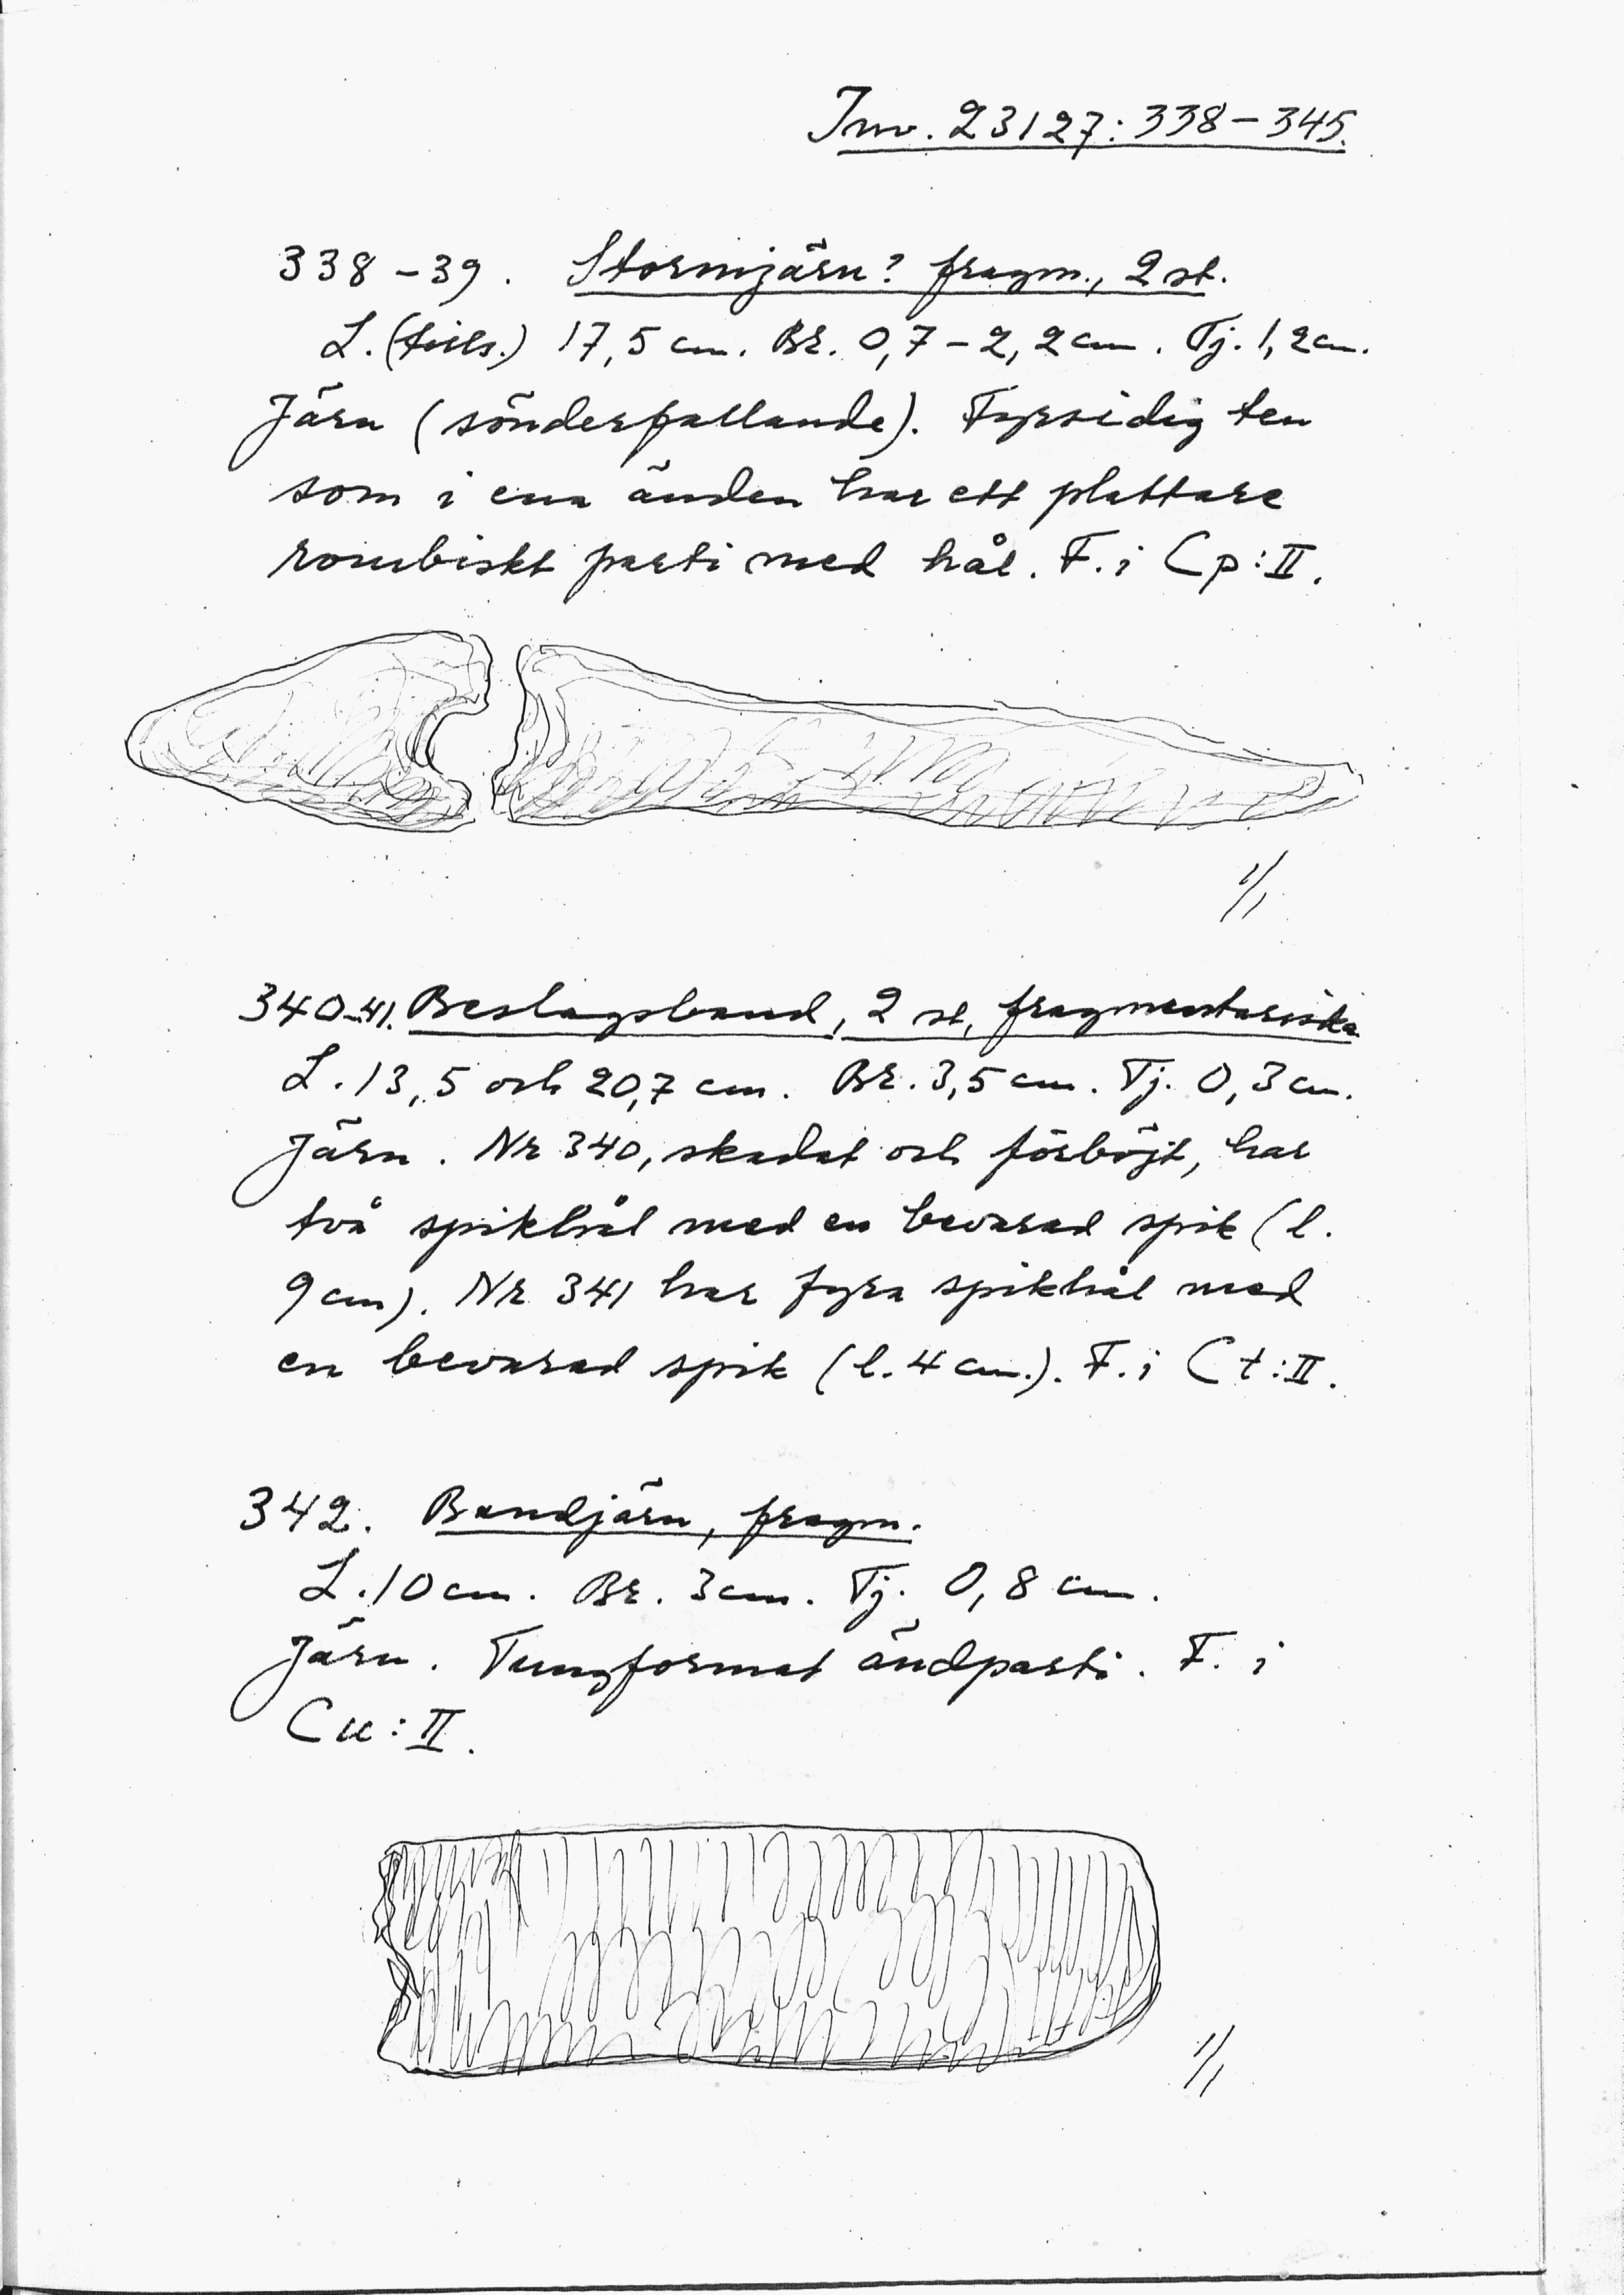 Inv. 23127:338-345.
338-39. Stormjärn? fragm., 2 st.
L. (tills.) 17,5 cm. Br. 0,7-2,2 cm. Tj. 1,2 cm.
Järn (sönderfallande). Fyrsidig ten
som i ena änden har ett plattare
rombiskt parti med hål. F. i Cp:II.
1/1
340-41. Beslagsband, 2 st, fragmentariska
L. 13,5 och 20,7 cm. Br. 3,5 cm. Tj. 0,3 cm.
Järn. Nr 340, skadat och förböjt, har
två spikhål med en bevarad spik (l.
9 cm). Nr 341 har fyra spikhål med
en bevarad spik (l. 4 cm.). F. i Ct:II.
342. Bandjärn, fragm.
L. 10 cm. Br. 3 cm. Tj. 0,8 cm.
Järn. Tungformat ändparti. F. i
Cu:II.
1/1